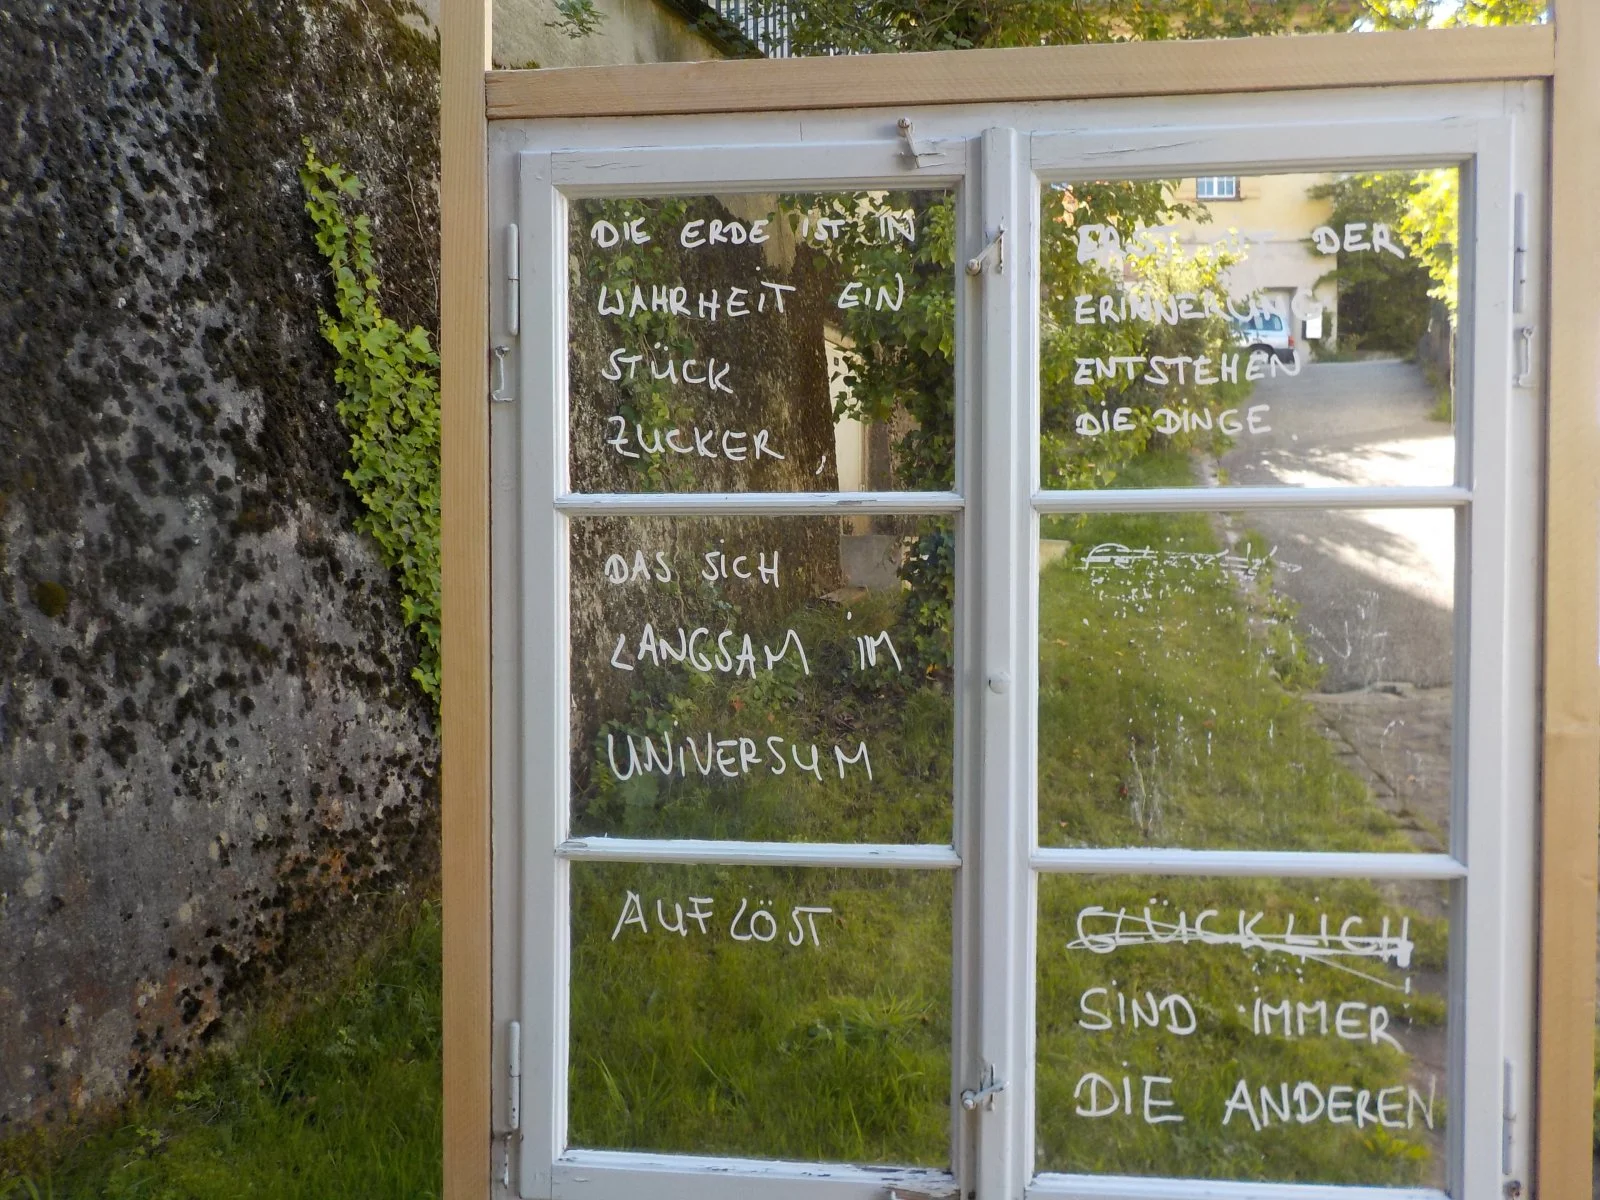 DIE ERDE IST IN
WAHRHEIT EIN
STÜCK
ZUCKER,
DAS SICH
LANGSAM IM
UNIVERSUM
AUFLÖST
ERST MIT DER
ERINNERUNG
ENTSTEHEN
DIE DINGE
GLÜCKLICH
SIND IMMER
DIE ANDEREN